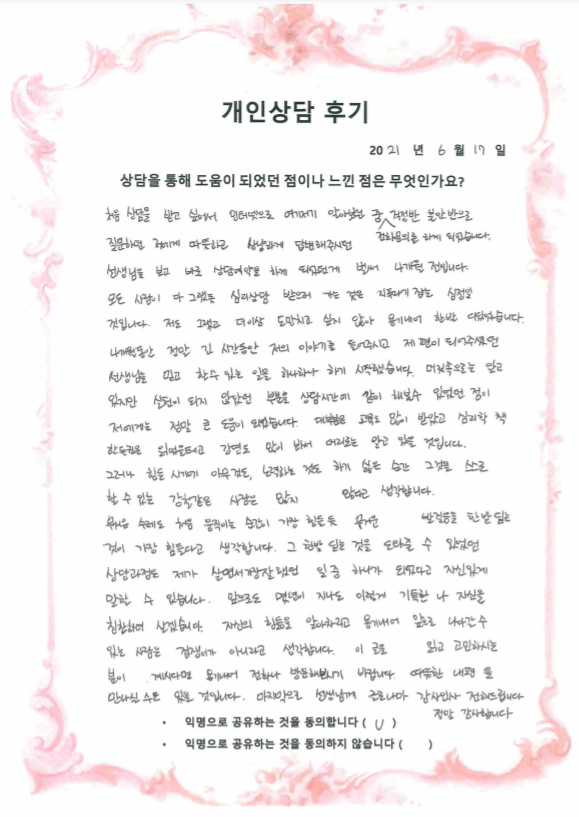 개인상담 후기
2021 년 6 월 17 일
상담을 통해 도움이 되었던 점이나 느낀 점은 무엇인가요?
처음 상담을 받고 싶어서 인터넷으로 여기저기 알아보던 중 걱정반 불안반으로
질문하던 저에게 따뜻하고 상냥하게 답변해주시던 전화문의를 하게 되었습니다.
선생님을 보고 바로 상담예약을 하게 되었던게 벌써 4개월 전입니다.
모든 사람이 다 그렇듯 심리상담 받으러 가는 것은 지푸라기 잡는 심정일
것입니다. 저도 그랬고 더이상 도망치고 싶지 않아 용기내어 한발 다가갔습니다.
4개월동안 정말 긴 시간동안 저의 이야기를 들어주시고 제 편이 되어주셨던
선생님을 믿고 할 수 있는 일을 하나하나 하기 시작했습니다. 머릿속으로는 알고
있지만 실천이 되지 않았던 부분을 상담시간에 같이 해볼수 있었던 점이
저에게는 정말 큰 도움이 되었습니다. 대부분은 교육도 많이 받았고 심리학 책
한두권은 읽어봤을테고 강연도 많이 봐서 머리로는 알고 있을 것입니다.
그러나 힘든 시기에 아무것도, 노력하는 것도 하기 싫은 순간 그것을 스스로
할 수 있는 강철같은 사람은 많지 않다고 생각합니다.
무거운 수레도 처음 움직이는 순간이 가장 힘든듯 무거운 발걸음을 한발 딛는
것이 가장 힘들다고 생각합니다. 그 한발 딛는 것을 도와줄 수 있었던
상담과정은 제가 살면서 가장 잘했던 일 중 하나가 되었다고 자신있게
말할 수 있습니다. 앞으로도 몇년이 지나도 이렇게 기특한 나 자신을
칭찬하며 살겠습니다. 자신의 힘듦을 알아차리고 용기내어 앞으로 나아갈수
있는 사람은 겁쟁이가 아니라고 생각합니다. 이 글을 읽고 고민하시는
분이 계시다면 용기내어 전화나 방문해보시기 바랍니다. 따뜻한 내편 을
만나실 수도 있을 것입니다. 마지막으로 선생님께 글로나마 감사인사 전해드립니다
정말 감사합니다
• 익명으로 공유하는 것을 동의합니다 ( )
• 익명으로 공유하는 것을 동의하지 않습니다 ( )